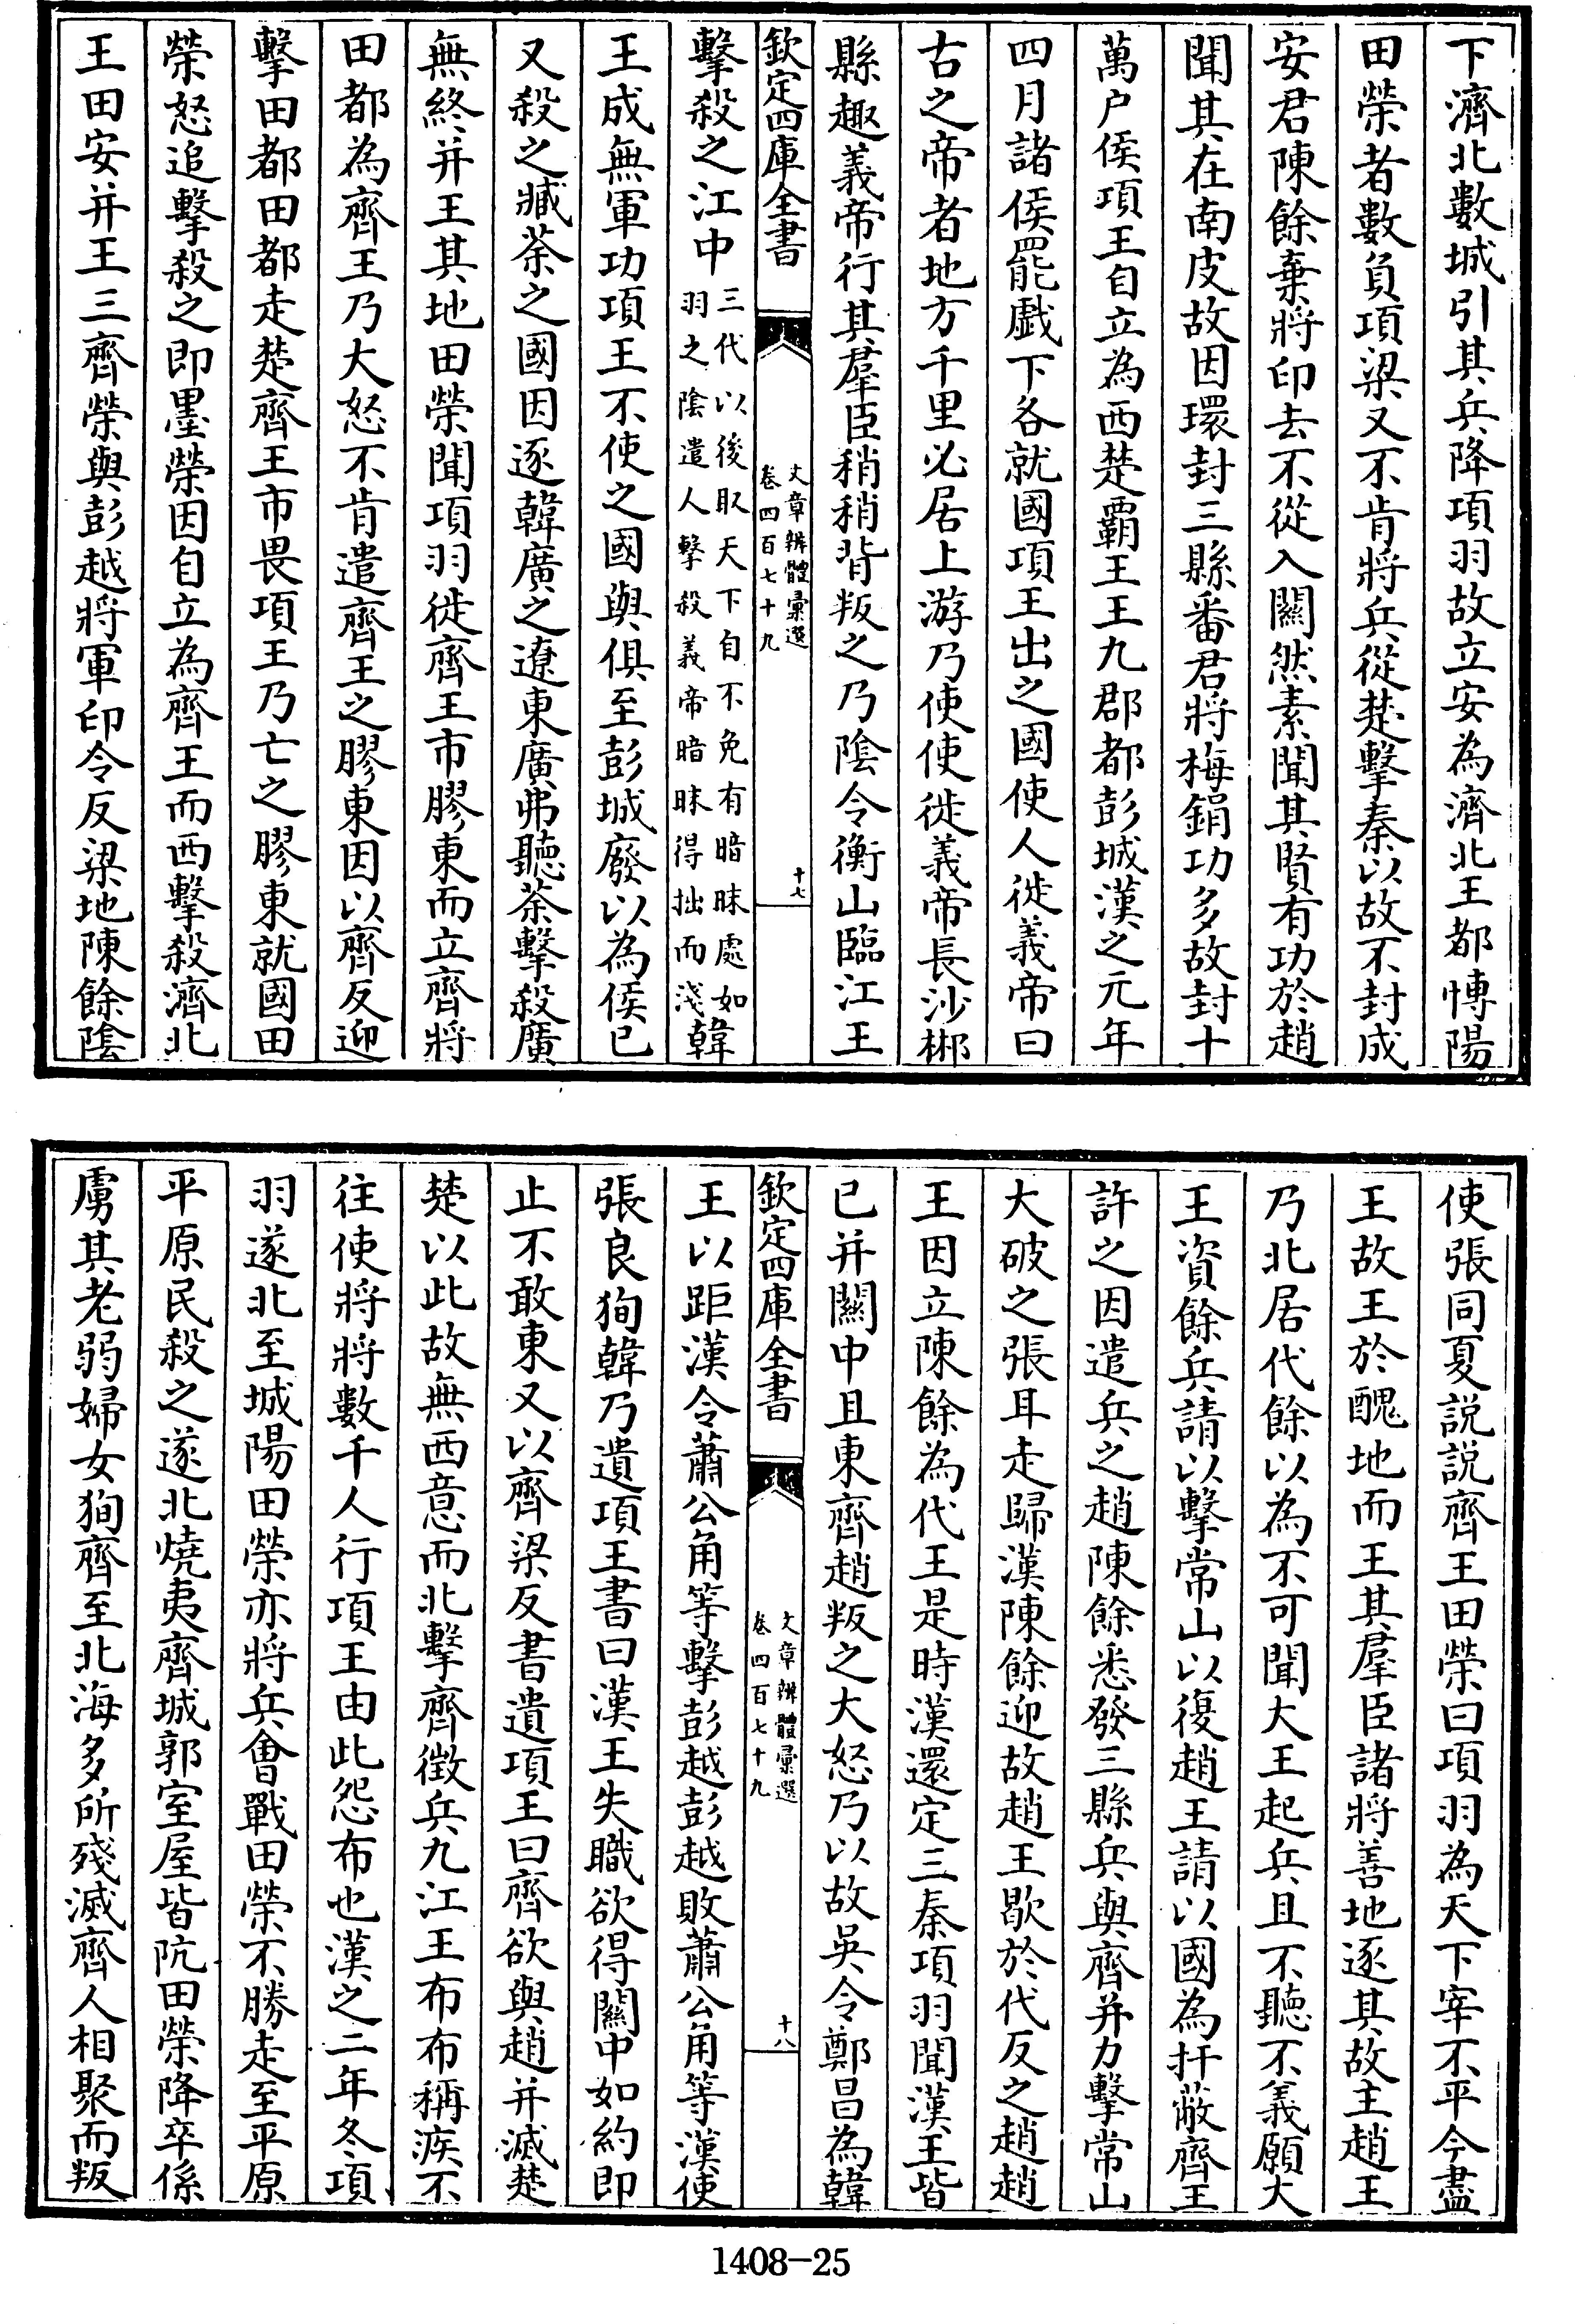 下濟北數城引其兵降項羽故立安為濟北王都博陽
田榮者數負項梁又不肯將兵從楚擊秦以故不封成
安君陳餘棄將印去不從入關然素聞其賢有功於趙
聞其在南皮故因環封三縣番君將梅鋗功多故封十
萬户侯項王自立為西楚霸王王九郡都彭城漢之元年
四月諸侯罷戲下各就國項王出之國使人徙義帝曰
古之帝者地方千里必居上游乃使使徙義帝長沙郴
縣趣義帝行其羣臣稍稍背叛之乃隂令衡山臨江王
欽定四庫全書
文章辨體彙選
卷四百七十九
十七
擊殺之江中三代以後取天下自不免有暗昧處如
羽之隂遣人擊殺義帝暗昧得拙而淺韓
王成無軍功項王不使之國與俱至彭城廢以為侯已
又殺之臧荼之國因逐韓廣之遼東廣弗聽荼擊殺廣
無終并王其地田榮聞項羽徙齊王市膠東而立齊將
田都為齊王乃大怒不肯遣齊王之膠東因以齊反迎
擊田都田都走楚齊王市畏項王乃亡之膠東就國田
榮怒追擊殺之即墨榮因自立為齊王而西擊殺濟北
王田安并王三齊榮與彭越將軍印令反梁地陳餘隂
使張同夏説説齊王田榮曰項羽為天下宰不平今盡
王故王於醜地而王其羣臣諸將善地逐其故主趙王
乃北居代餘以為不可聞大王起兵且不聽不義願大
王資餘兵請以擊常山以復趙王請以國為扞蔽齊王
許之因遣兵之趙陳餘悉發三縣兵與齊并力擊常山
大破之張耳走歸漢陳餘迎故趙王歇於代反之趙趙
王因立陳餘為代王是時漢還定三秦項羽聞漢王皆
已并關中且東齊趙叛之大怒乃以故吳令鄭昌為韓
欽定四庫全書
文章辨體彙選
卷四百七十九
十八
王以距漢令蕭公角等擊彭越彭越敗蕭公角等漢使
張良狥韓乃遺項王書曰漢王失職欲得關中如約即
止不敢東又以齊梁反書遺項王曰齊欲與趙并滅楚
楚以此故無西意而北擊齊徴兵九江王布布稱疾不
往使將將數千人行項王由此怨布也漢之二年冬項
羽遂北至城陽田榮亦將兵會戰田榮不勝走至平原
平原民殺之遂北燒夷齊城郭室屋皆阬田榮降卒係
虜其老弱婦女狥齊至北海多所殘滅齊人相聚而叛
1408-25